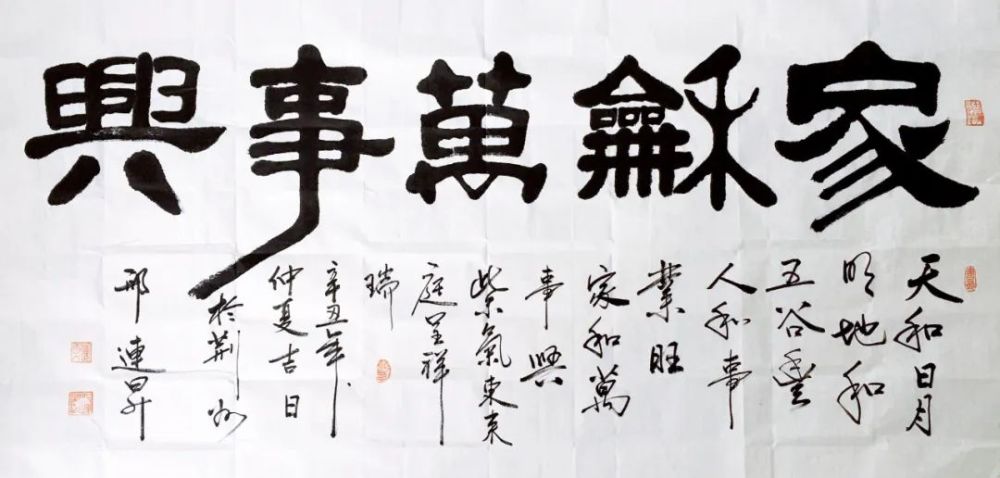 家龢萬事興
天和日月
明地和
五谷豐
人和事
業旺
家和萬
事興
紫氣東来
庭呈祥
瑞
辛丑年
仲夏吉日
於荆州
邢連昇